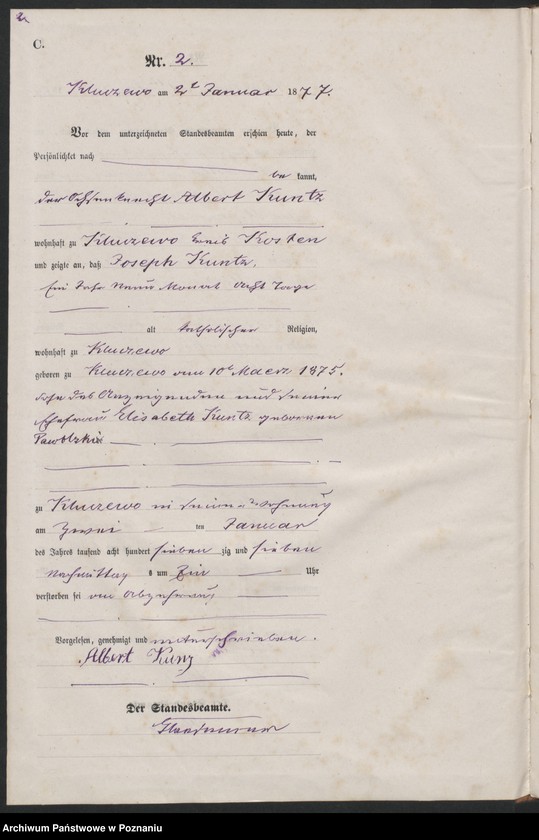 2
C.
Nr. 2.
Kluczewo am 2t Januar 1877.
Vor dem unterzeichneten Standesbeamten erschien heute, der
Persönlichkeit nach
be kannt,
der Ochsenknecht Albert Kuntz
wohnhaft zu Kluczewo Kreis Kosten
und zeigte an, daß Joseph Kuntz,
Ein Jahr Neun Monat acht Tage
alt katholischer Religion,
wohnhaft zu Kluczewo
geboren zu Kluczewo am 10t Maerz 1875.
Sohn des Anzeigenden und seiner
Ehefrau Elisabeth Kuntz geborenen
zu Kluczewo in seiner Wohnung
am Zwei ten Januar
des Jahres tausend acht hundert sieben zig und sieben
Nachmittag s um Ein Uhr
verstorben sei an Abzehrung
Vorgelesen, genehmigt und unterschrieben.
Albert Kunz
Der Standesbeamte.
Archiwum Państwowe w Poznaniu